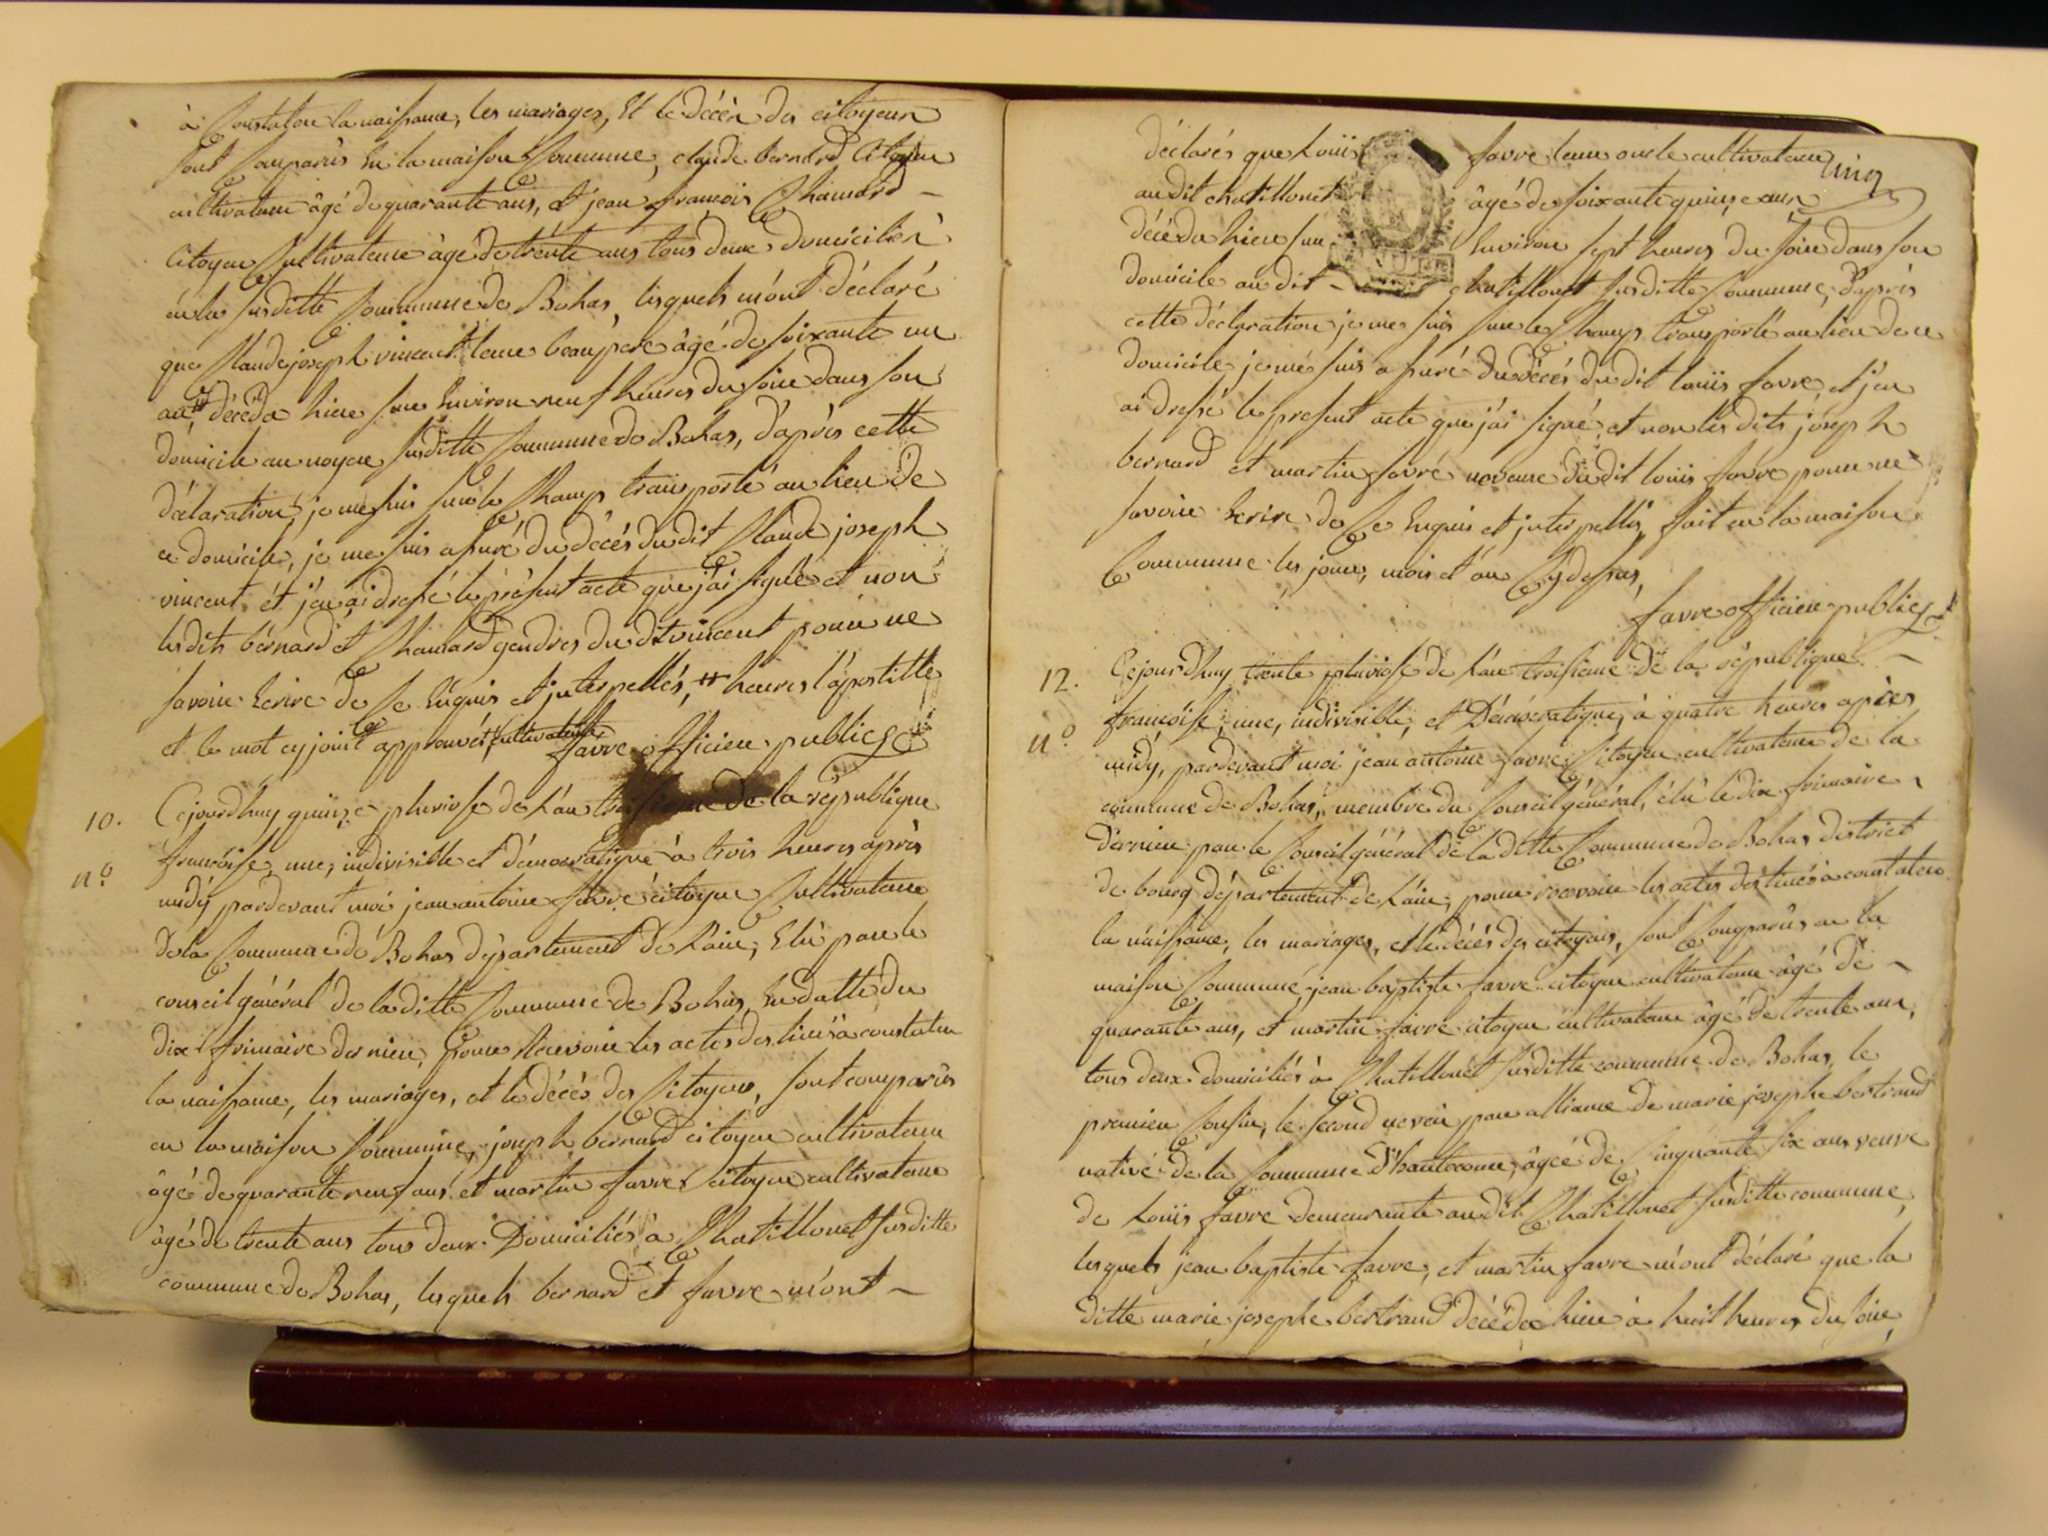 à Constater la naissance, les mariages, et le décès des citoyens
sont Comparûs en la maison Commune, claude bernard Citoyen
cultivateur âgé de quarante ans, et jean françois Chanard –
Citoyen Cultivateur âgé de trente ans tous deux domiciliés
en la susditte Commune de Bohas, lesquels m'ont déclaré
que Claude joseph vincent leur beaupere âgé de soixante un
ans, décéda hier sur Environ neuf heures du soir dans son
domicile au noyer susditte Commune de Bohas, d'après cette
déclaration, je me suis sur le Champ transporté au lieu de
ce domicile, je me suis assuré du décés du dit Claude joseph
vincent, et j'en ai dressé le présent acte que j'ai signé et non
lesdits bérnard et Chanard gendres du dt vincent pour ne
savoir Ecrire de Ce Enquis et interpellés, heures l'apostille
et le mot cy joint approuvés, cultivateur
favre officier public
10. Cejourdhuy quinze pluviose de l'an troisieme de la république
n.º françoise, une, indivisible et démocratique à trois heures après
midy pardevant moi jean antoine favre citoyen Cultivateur
de la Commune de Bohas département de L'ain, Elû par le
conseil général de laditte Commune de Bohas, En datte du
dix frimaire dernier, pour Recevoir les actes destinés à constater
la naissance, les mariages, et le décès des Citoyens, sont comparûs
en la maison Commune, joseph bernard citoyen cultivateur
âgé de quarante neuf ans, et martin favre citoyen cultivateur
âgé de trente ans tous deux Domiciliés à Chatillonet susditte
commune de Bohas, lesquels bernard et favre m'ont –
cinq
déclarés que Louis favre leur oncle cultivateur
au dit chatillonet âgé de soixante quinze ans
décéda hier sur Environ sept heures du soir dans son
domicile au dit – chatillonet susditte Commune, d'après
cette déclaration, je me suis sur le Champ transporté au lieu de ce
domicile je mé suis assuré du décés du dit louis favre, et j'en
ai dressé le present acte que j'ai signé, et non lés dits jóseph
bernard et martin favré neveux du dit louis favre pour ne
savoir Ecrire de Ce Enquis et interpellés, fait en la maison
Commune les jour, mois et an Cy dessus,
favre officier public
12. Cejourdhuy trente pluviose de L'an troisieme de la république –
n.º françoise, une, indivisible, et Démocratique, à quatre heures après
midy, pardevant moi jean antoine favre Citoyen cultivateur de la
commune de Bohas, membre du Conseil général, élû le dix frimaire
dernier par le Conseil général de la ditte Commune de Bohas district
de bourg département de L'ain, pour recevoir les actes destinés à constater
la naissance, les mariages, et le décés des citoyens, sont Comparûs en la
maison Commune, jean baptiste favre citoyen cultivateur âgé de –
quarante ans, et martin favre citoyen cultivateur âgé de trente ans,
tous deux domiciliés à Chatillonet susditte commune de Bohas, le
premier Cousin, le second neveu par alliance de marie josephe bertrand
native de la Commune d'hautecour, âgée de Cinquante six ans veuve
de Louis favre demeurante au dit Chatillonet susditte commune,
lesquels jean baptiste favre, et martin favre m'ont déclaré que la
ditte marie josephe bertrand décéda hier à huit heures du soir,